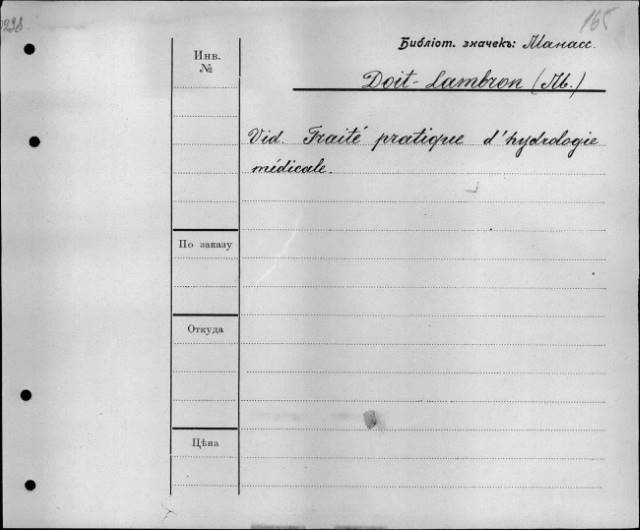 165
Библіот. значекъ: Манасс.
Инв. №
Doit-Lambron (M.)
Vid. Traité pratique d'hydrologie
médicale.
По заказу
Откуда
Цѣна